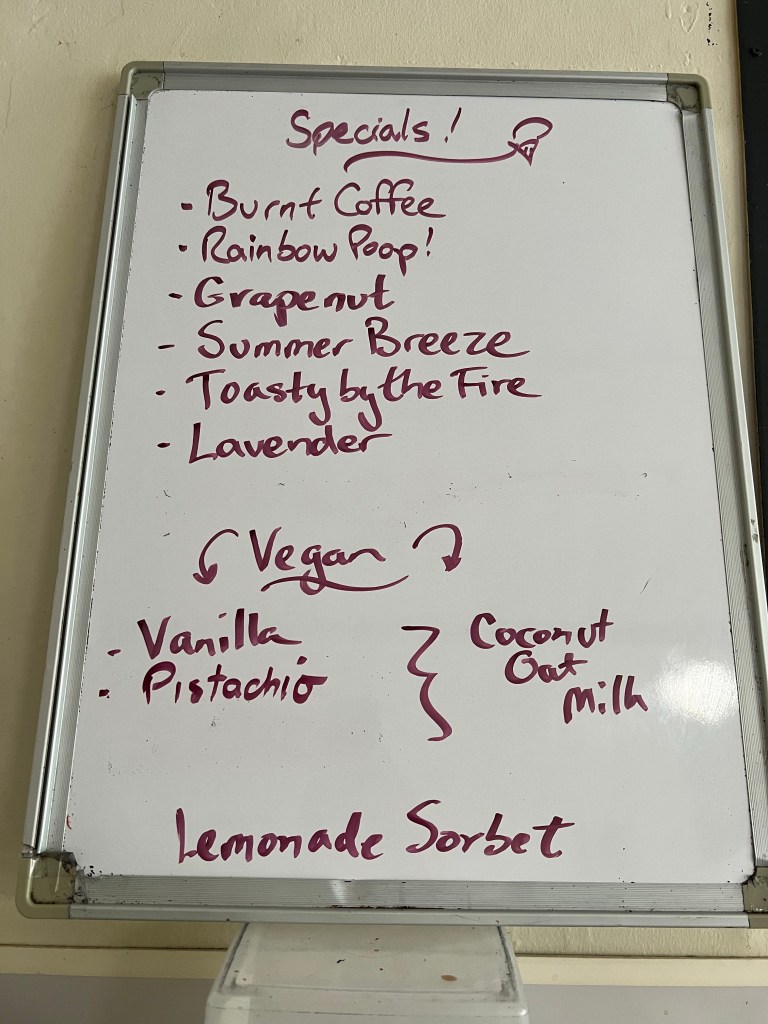 Specials!
- Burnt Coffee
- Rainbow Poop!
- Grapenut
- Summer Breeze
- Toasty by the Fire
- Lavender
Vegan
- Vanilla
- Pistachio
Coconut
Oat
Milk
Lemonade Sorbet